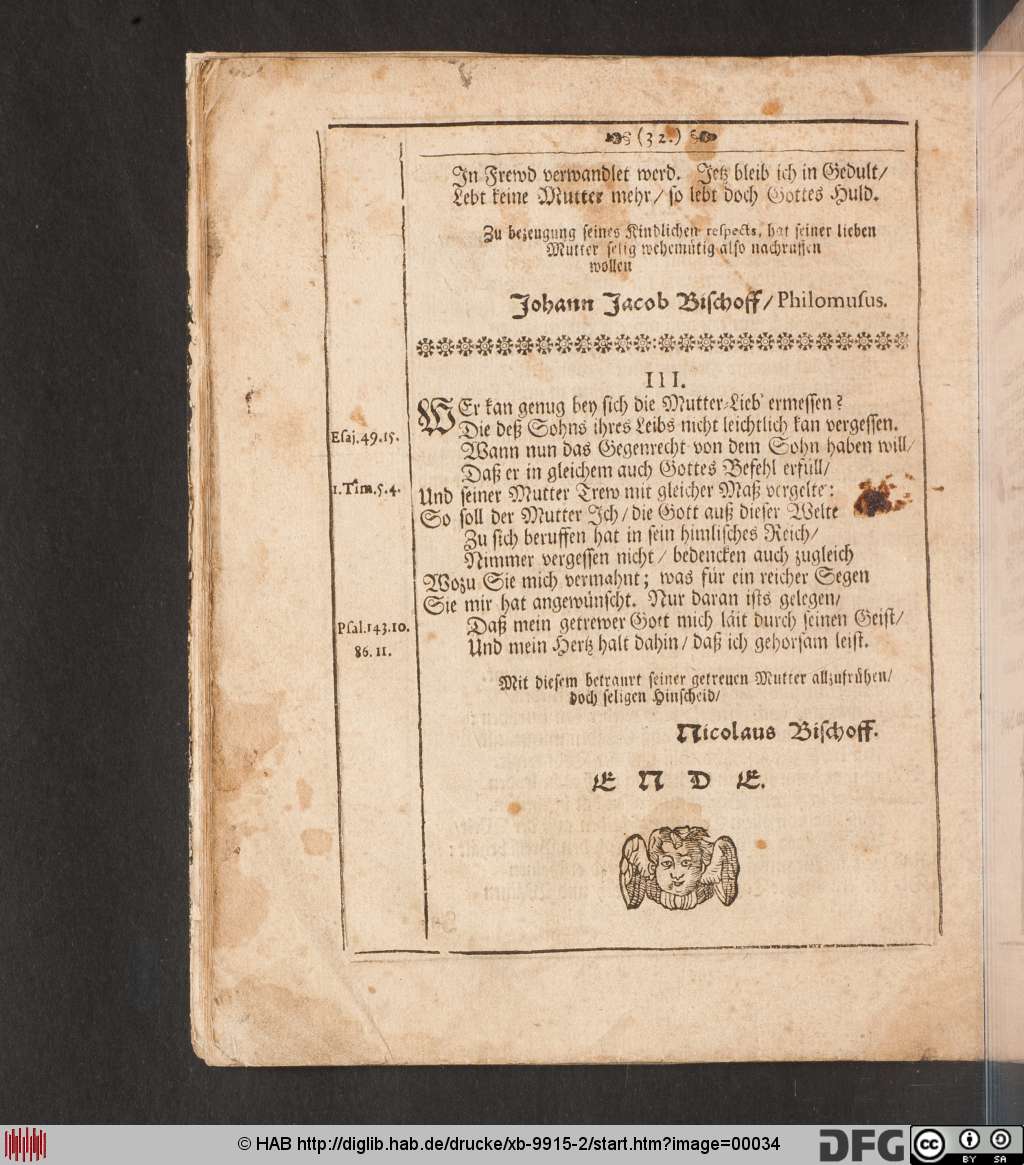 (32.)
In Frewd verwandlet werd. Jetz bleib ich in Gedult/
Lebt keine Mutter mehr/ so lebt doch Gottes Huld.
Zu bezeugung seines Kindlichen respects, hat seiner lieben
Mutter selig wehemütig also nachruffen
wollen
Johann Jacob Bischoff/ Philomusus.
III.
WEr kan genug bey sich die Mutter-Lieb' ermessen?
Die deß Sohns ihres Leibs nicht leichtlich kan vergessen.
Esaj.49.15.
Wann nun das Gegenrecht von dem Sohn haben will/
Daß er in gleichem auch Gottes Befehl erfüll/
1.Tim.5.4.
Und seiner Mutter Trew mit gleicher Maß vergelte:
So soll der Mutter Ich/ die Gott auß dieser Welte
Zu sich beruffen hat in sein himlisches Reich/
Nimmer vergessen nicht/ bedencken auch zugleich
Wozu Sie mich vermahnt; was für ein reicher Segen
Sie mir hat angewünscht. Nur daran ists gelegen/
Psal.143.10.
Daß mein getrewer Gott mich läit durch seinen Geist/
86.11.
Und mein Hertz halt dahin/ daß ich gehorsam leist.
Mit diesem betraurt seiner getreuen Mutter allzufrühen/
doch seligen Hinscheid/
Nicolaus Bischoff.
ENDE.
© HAB http://diglib.hab.de/drucke/xb-9915-2/start.htm?image=00034
DFG
cc BY SA